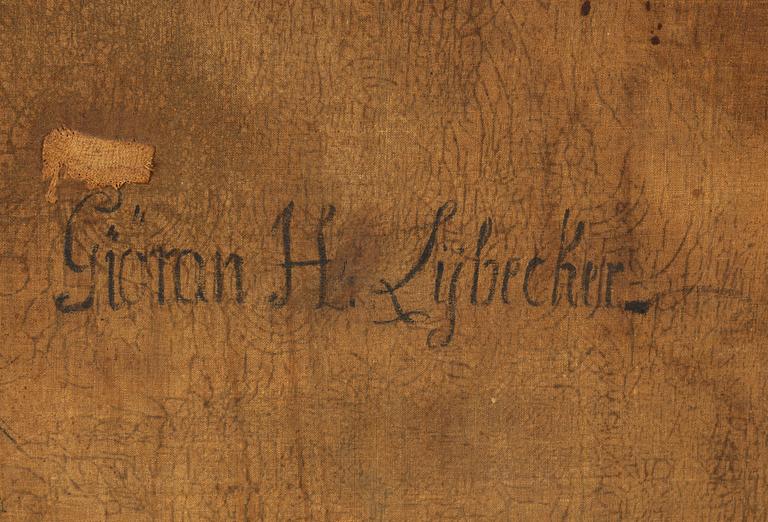 Giöran H. Lÿbecker